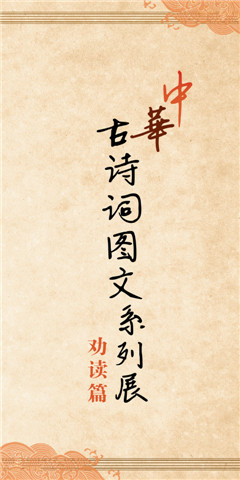 中華
古诗词图文系列展
劝读篇